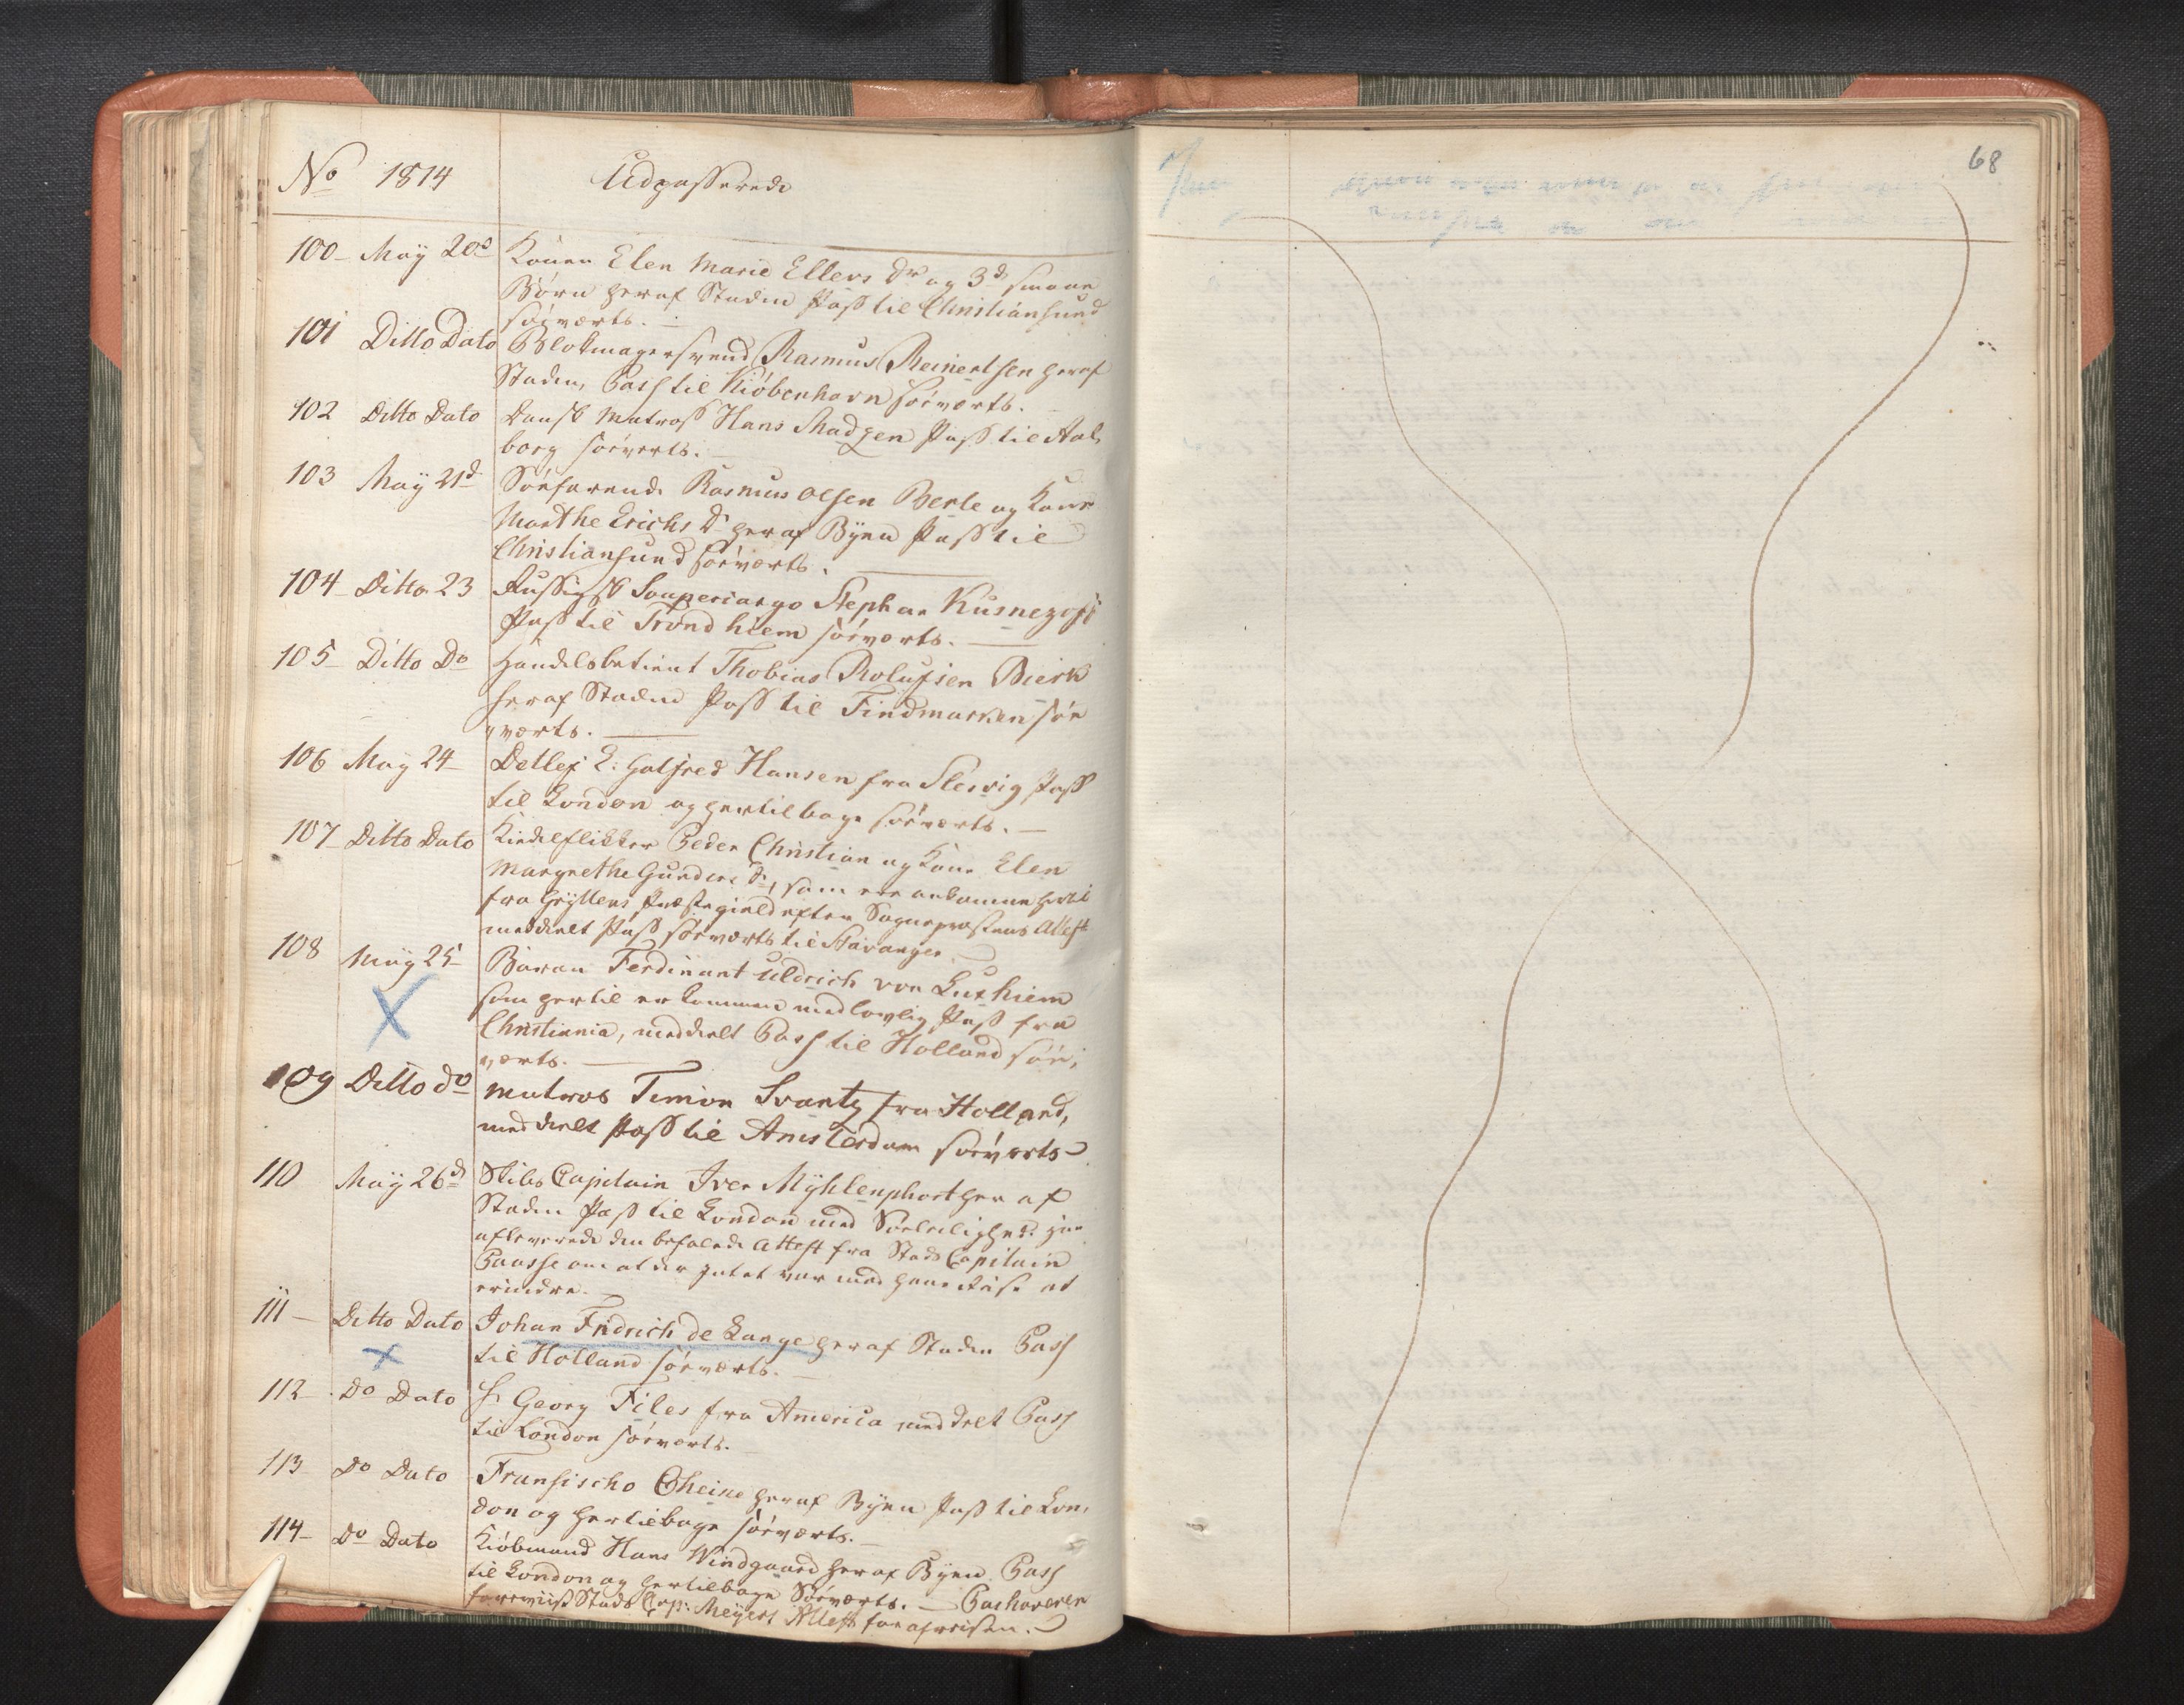 No 1814 Udpasserede
100 May 20d Konen Elen Marie Ellers Dr og 3de smaae
Børn heraf Staden Pass til Christiansund
søeværts.
101 Ditto Dato Blokmagersvend Rasmus Reinertsen heraf
Staden, Pass til Kiöbenhavn søeværts.
102 Ditto Dato Dansk Matros Hans Madsen Pass til Aal,
borg søeverts.
103 May 21d Søefarende Rasmus Olsen Berle og Kone
Marthe Erichs Dr heraf Byen Pass til
Christiansund søeværts.
104 Ditto 23 Russisk Soupercargo Stephan Kusnezoff
Pass til Trondhiem søeværts.
105 Ditto Do Handelsbetient Thobias Rolufsen Bierk
heraf Staden Pass til Findmarken søe
værts.
106 May 24 Detlef E: Gotfred Hansen fra Slesvig Pass
til London og hertilbage søeværts.
107 Ditto Dato Kiedelflikker Peder Christian og Kone Elen
Margrethe Gunders Dr, som ere ankomne hertil
fra Præstegield efter Sognepræstens Attest
meddeelt Pass søeværts til Stavanger
108 May 25 Baron Ferdinant Uldrich von
som hertil er kommen med lovlig Pass fra
Christiania, meddeelt Pass til Holland søe,
værts.
109 Ditto do Matros Timon Svantz fra Holland,
meddeelt Pass til Amsterdam søeværts
110 May 26d Skibs Capitain Iver Mÿhlenphort her af
Staden Pass til London med Søeleilighed: han
afleverede den befalede Attest fra Stads Capitain
Paasche om at der intet var mod hans Reise at
erindre.
111 Ditto Dato Johan Fridrich de Lange heraf Staden Pass
til Holland søeværts.
112 Do Dato Hr Georg Files fra America meddelt Pass
til London søeværts.
113 Do Dato Fransischo heraf Byen Pass til Lon,
don og hertilbage søeværts.
114 Do Dato Kiöbmand Hans Windgaard heraf Byen Pass
til London og hertilbage Søeværts. — Pashaveren
foreviist Stads Cap: Meÿers Attest for afreisen.
68